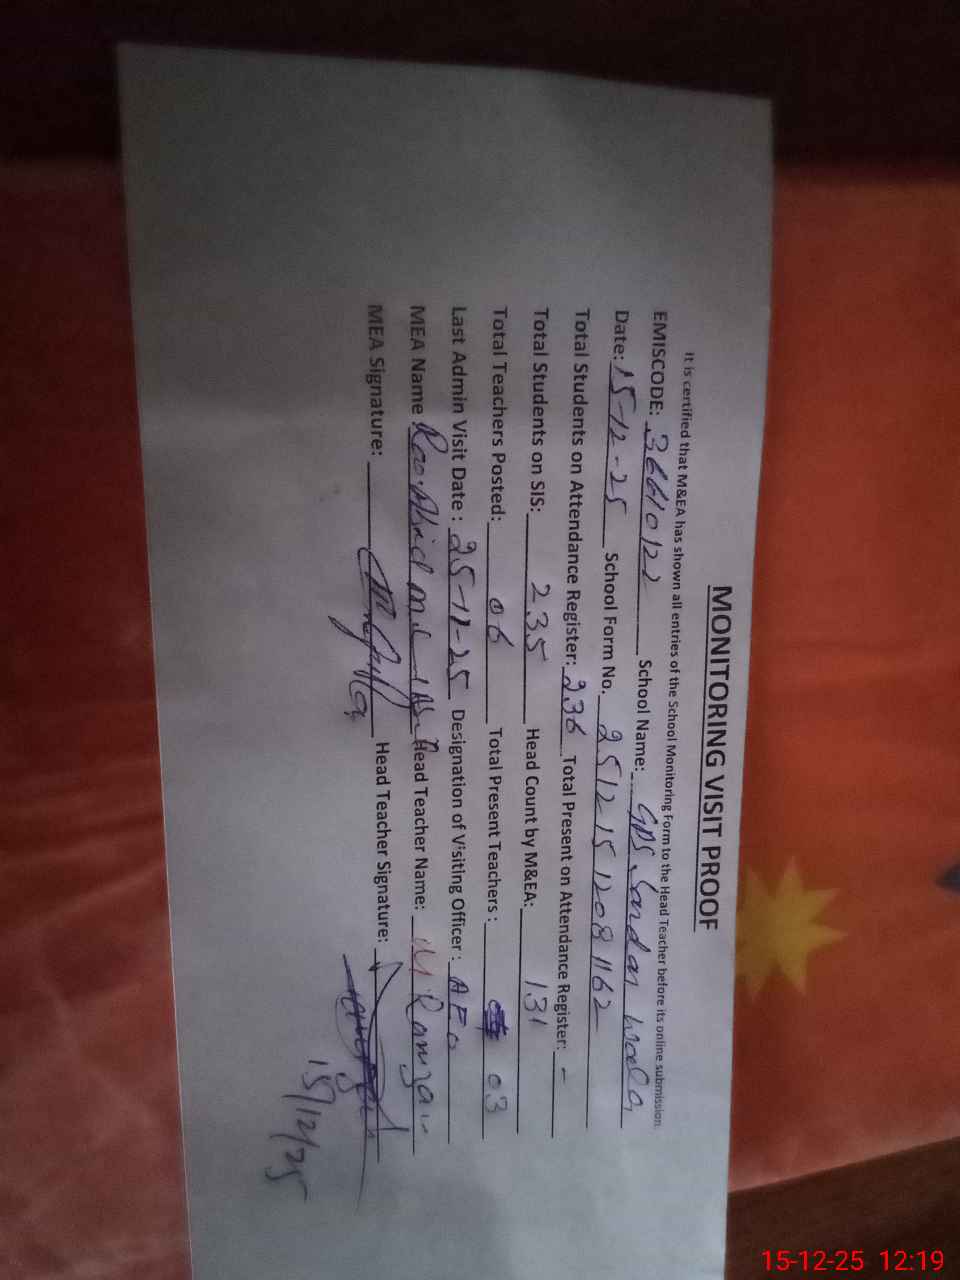 MONITORING VISIT PROOF
It is certified that M&EA has shown all entries of the School Monitoring Form to the Head Teacher before its online submission.
EMISCODE: 36610122 School Name: GPS Sandan Waala
Date: 15-12-25 School Form No. 251215 1208 1162
Total Students on Attendance Register: 236 Total Present on Attendance Register: -
Total Students on SIS: 235 Head Count by M&EA: 131
Total Teachers Posted: 06 Total Present Teachers: 03
Last Admin Visit Date: 25-11-25 Designation of Visiting Officer: AEO
MEA Name Rao Abid Head Teacher Name: M Ramzan
MEA Signature: Head Teacher Signature:
15/12/25
15-12-25 12:19